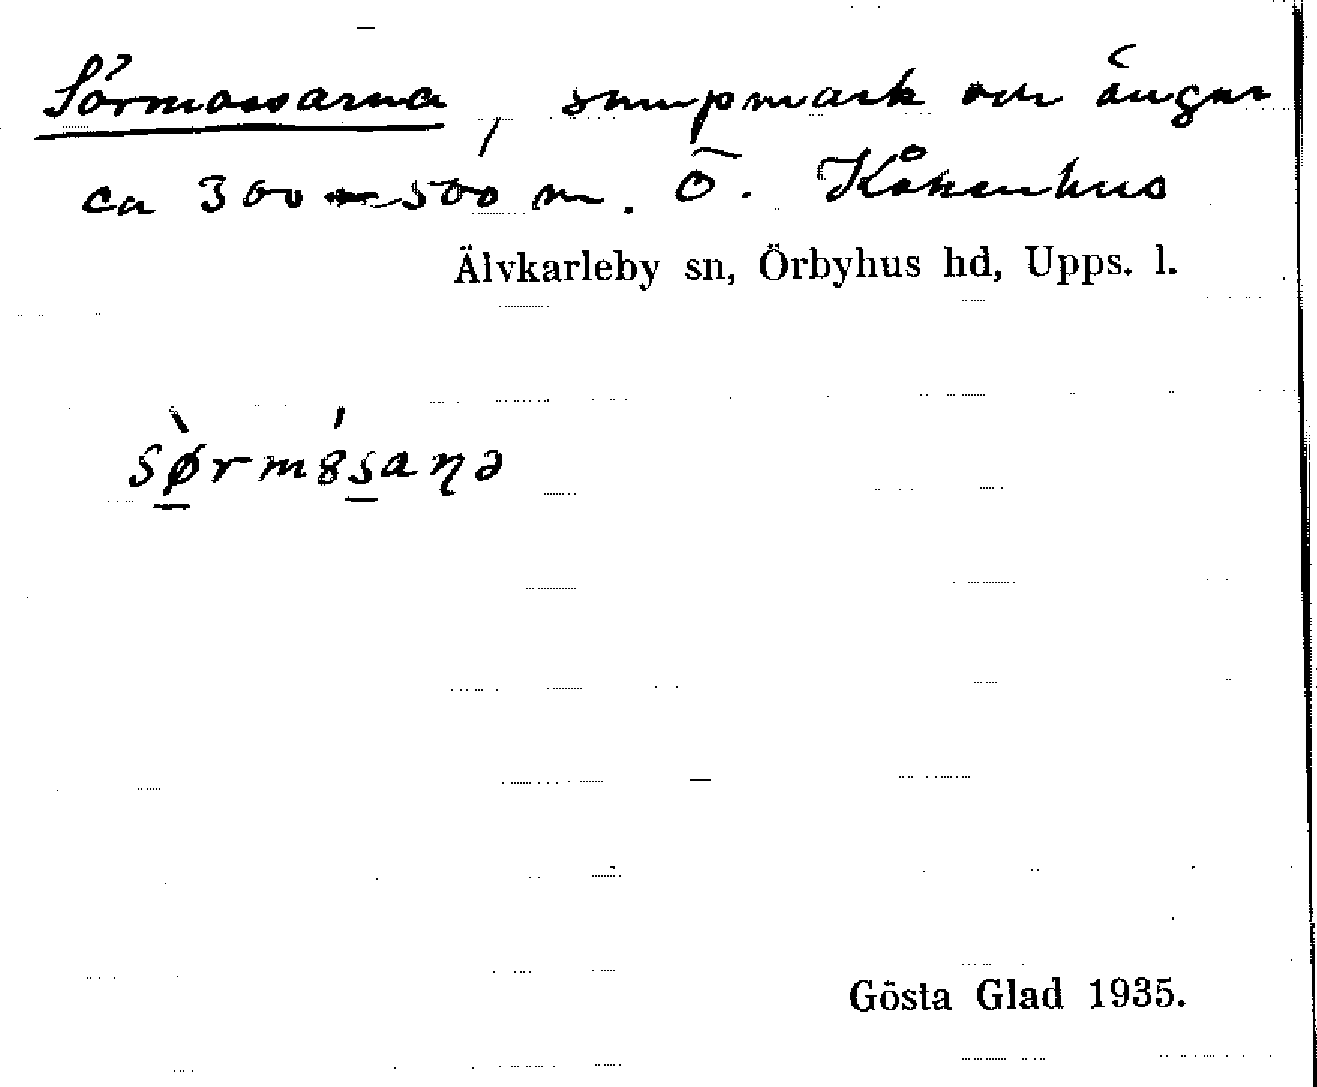 Sörmossarna, sumpmark och ängar
ca 300–500 m. Ö. Kåkenhus
Älvkarleby sn, Örbyhus hd, Upps. l.
sø̀rmȣ́saηə
Gösta Glad 1935.